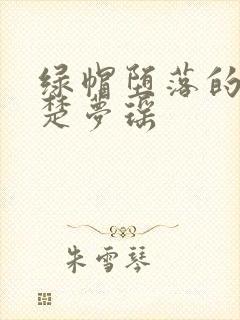 绿帽堕落的
楚梦瑶
朱雪琴